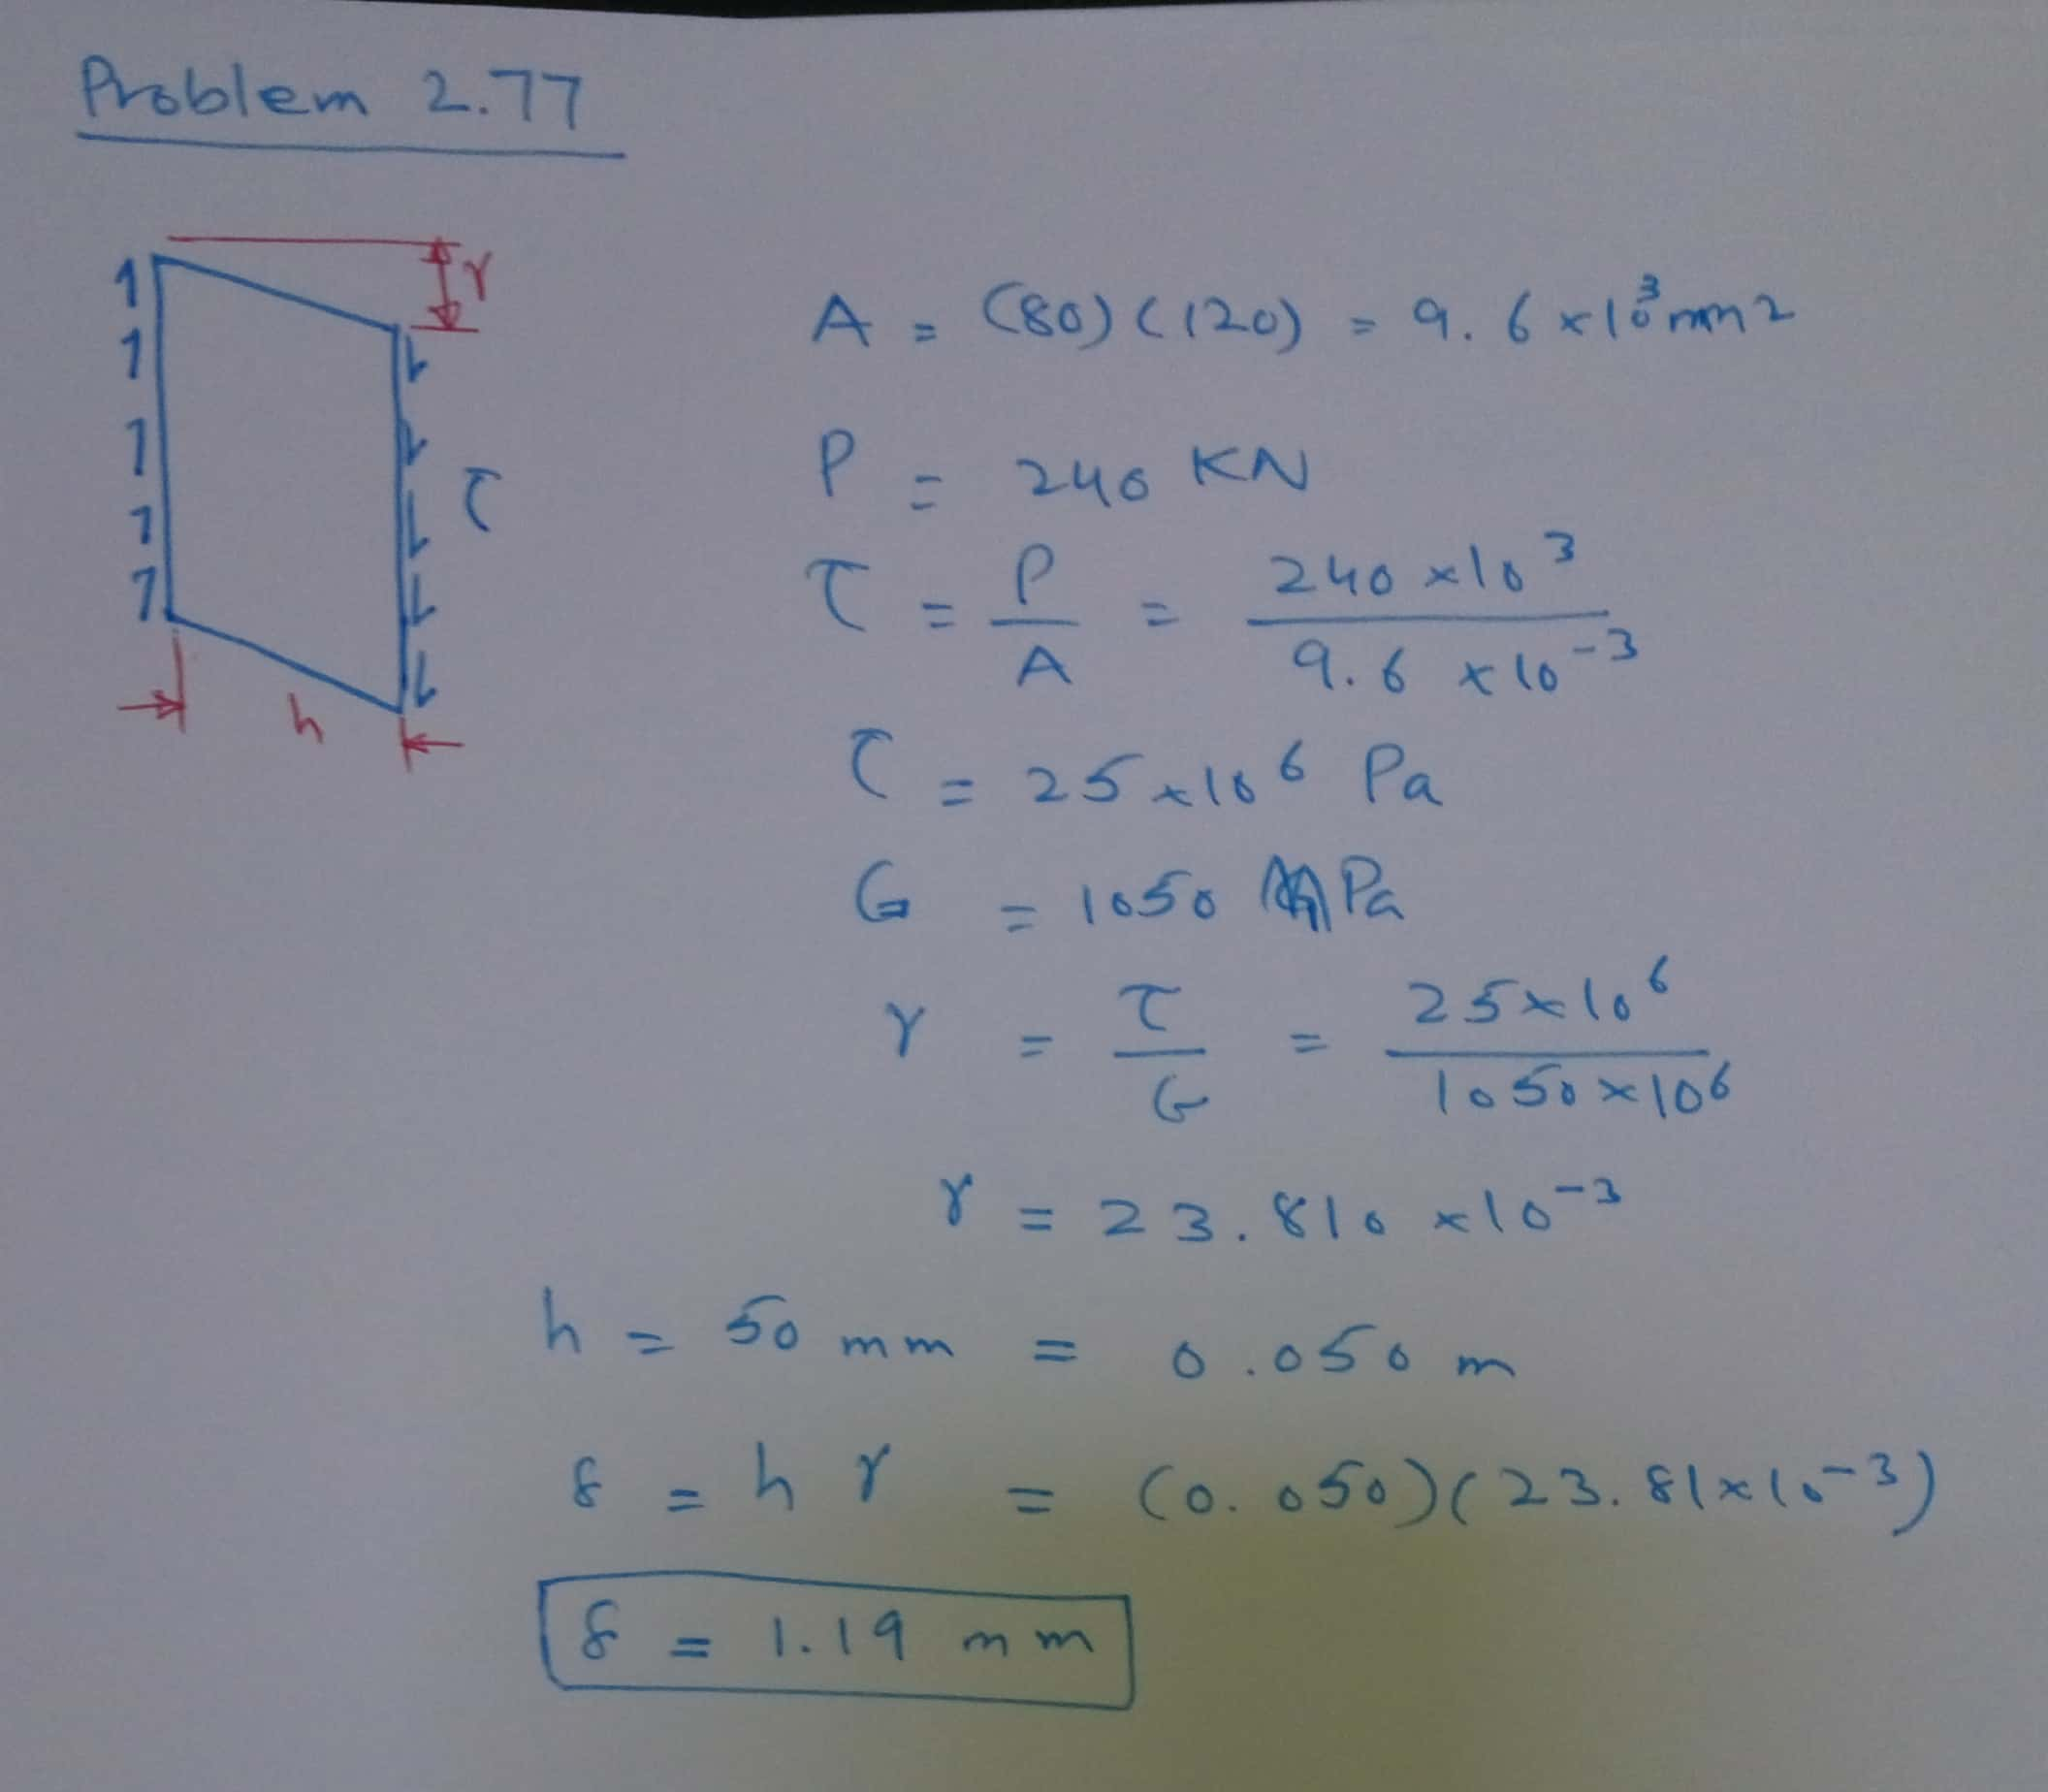 Problem 2.77
γ
τ
h
A = (80)(120) = 9.6 × 10³ mm2
P = 240 KN
τ = P/A = 240 × 10³ / 9.6 × 10⁻³
τ = 25 × 10⁶ Pa
G = 1050 MPa
γ = τ/G = 25 × 10⁶ / 1050 × 10⁶
γ = 23.810 × 10⁻³
h = 50 mm = 0.050 m
δ = h γ = (0.050)(23.81 × 10⁻³)
δ = 1.19 mm